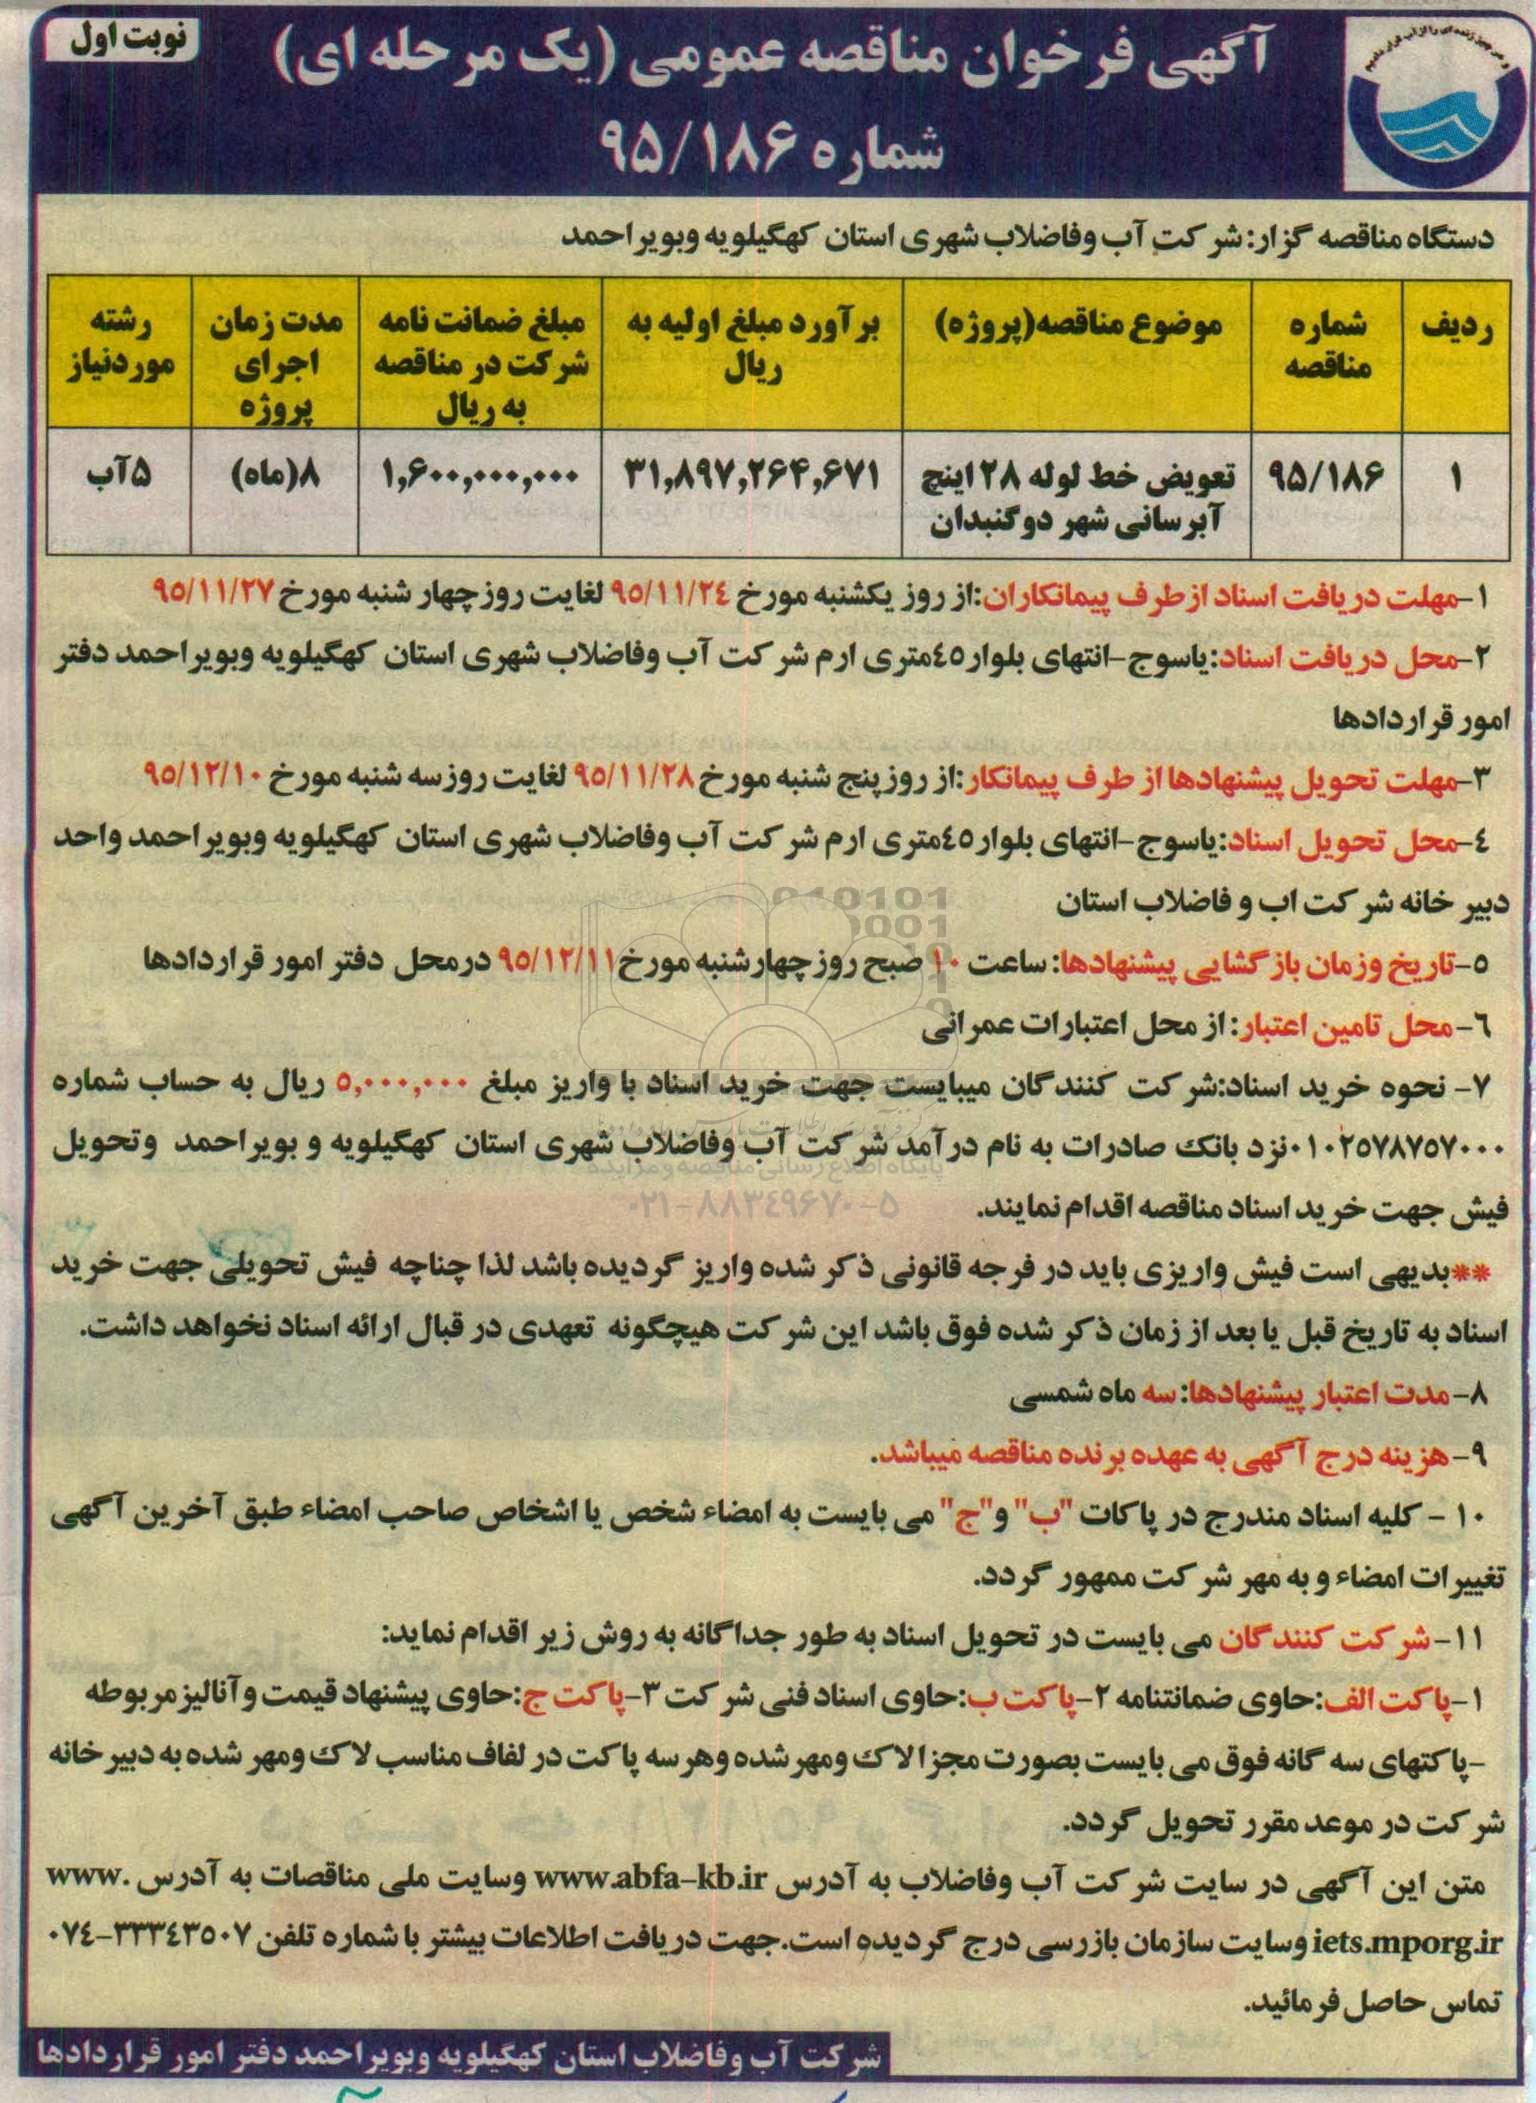 نوبت اول
آگهی فرخوان مناقصه عمومی (یک مرحله ای)
شماره ۹۵/۱۸۶
دستگاه مناقصه گزار: شرکت آب وفاضلاب شهری استان کهگیلویه وبویراحمد
ردیف | شماره مناقصه | موضوع مناقصه(پروژه) | برآورد مبلغ اولیه به ریال | مبلغ ضمانت نامه شرکت در مناقصه به ریال | مدت زمان اجرای پروژه | رشته موردنیاز
۱ | ۹۵/۱۸۶ | تعویض خط لوله ۲۸ اینچ آبرسانی شهر دوگنبدان | ۳۱,۸۹۷,۲۶۴,۶۷۱ | ۱,۶۰۰,۰۰۰,۰۰۰ | ۸(ماه) | ۵آب
۱-مهلت دریافت اسناد ازطرف پیمانکاران:از روز یکشنبه مورخ ۹۵/۱۱/۲٤ لغایت روزچهار شنبه مورخ ۹۵/۱۱/۲۷
۲-محل دریافت اسناد:یاسوج-انتهای بلوار٤٥متری ارم شرکت آب وفاضلاب شهری استان کهگیلویه وبویراحمد دفتر
امور قراردادها
۳-مهلت تحویل پیشنهادها از طرف پیمانکار:از روزپنج شنبه مورخ ۹۵/۱۱/۲۸ لغایت روزسه شنبه مورخ ۹۵/۱۲/۱۰
٤-محل تحویل اسناد:یاسوج-انتهای بلوار٤٥متری ارم شرکت آب وفاضلاب شهری استان کهگیلویه وبویراحمد واحد
دبیر خانه شرکت اب و فاضلاب استان
۵-تاریخ وزمان بازگشایی پیشنهادها: ساعت ۱۰ صبح روزچهارشنبه مورخ۹۵/۱۲/۱۱ درمحل دفتر امور قراردادها
٦-محل تامین اعتبار: از محل اعتبارات عمرانی
۷- نحوه خرید اسناد:شرکت کنندگان میبایست جهت خرید اسناد با واریز مبلغ ۵,۰۰۰,۰۰۰ ریال به حساب شماره
۰۱۰۲۵۷۸۷۵۷۰۰۰نزد بانک صادرات به نام درآمد شرکت آب وفاضلاب شهری استان کهگیلویه و بویراحمد وتحویل
پایگاه اطلاع رسانی مناقصه و مزایده
فیش جهت خرید اسناد مناقصه اقدام نمایند.
۰۲۱-۸۸۳۴۹۶۷۰-۵
**بدیهی است فیش واریزی باید در فرجه قانونی ذکر شده واریز گردیده باشد لذا چناچه فیش تحویلی جهت خرید
اسناد به تاریخ قبل یا بعد از زمان ذکر شده فوق باشد این شرکت هیچگونه تعهدی در قبال ارائه اسناد نخواهد داشت.
۸-مدت اعتبار پیشنهادها: سه ماه شمسی
۹-هزینه درج آگهی به عهده برنده مناقصه میباشد.
۱۰- کلیه اسناد مندرج در پاکات "ب" و"ج" می بایست به امضاء شخص یا اشخاص صاحب امضاء طبق آخرین آگهی
تغییرات امضاء و به مهر شرکت ممهور گردد.
۱۱-شرکت کنندگان می بایست در تحویل اسناد به طور جداگانه به روش زیر اقدام نماید:
۱-پاکت الف:حاوی ضمانتنامه ۲-پاکت ب:حاوی اسناد فنی شرکت ۳-پاکت ج:حاوی پیشنهاد قیمت وآنالیزمربوطه
-پاکتهای سه گانه فوق می بایست بصورت مجزا لاک ومهرشده وهرسه پاکت در لفاف مناسب لاک ومهر شده به دبیرخانه
شرکت در موعد مقرر تحویل گردد.
متن این آگهی در سایت شرکت آب وفاضلاب به آدرس www.abfa-kb.ir وسایت ملی مناقصات به آدرس www.
iets.mporg.ir وسایت سازمان بازرسی درج گردیده است.جهت دریافت اطلاعات بیشتر با شماره تلفن ۰۷٤-۳۳۳٤۳۵۰۷
تماس حاصل فرمائید.
شرکت آب وفاضلاب استان کهگیلویه وبویراحمد دفتر امور قراردادها